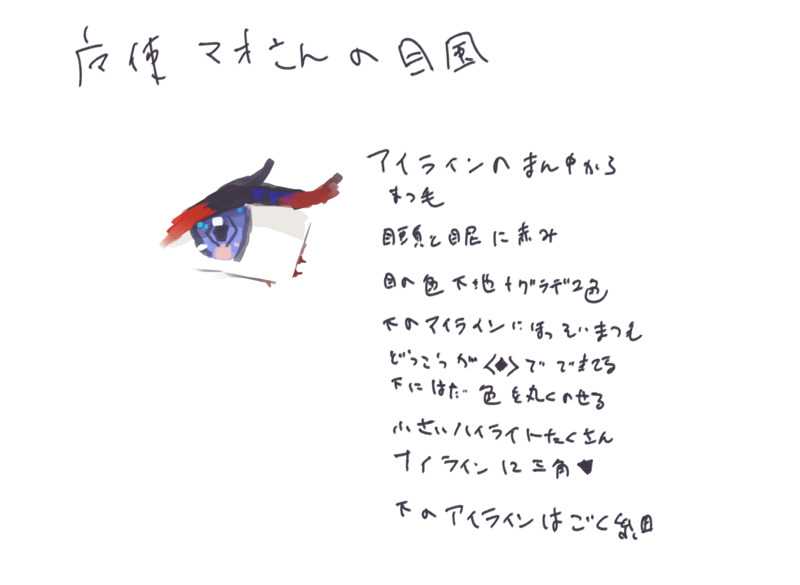 マオさんの目風
アイラインのまん中から
まつ毛
目頭と目尻に赤み
目の色 下地+グラデ2色
下のアイラインにほっそいまつも
どうこうが<◆>でできてる
下にはだ色を丸くのせる
小さいハイライトたくさん
アイラインに三角▼
下のアイラインはごく細